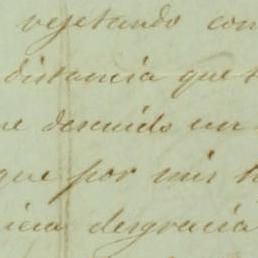 vejetando con
distancia que
descuido un
que por mis
desgracia